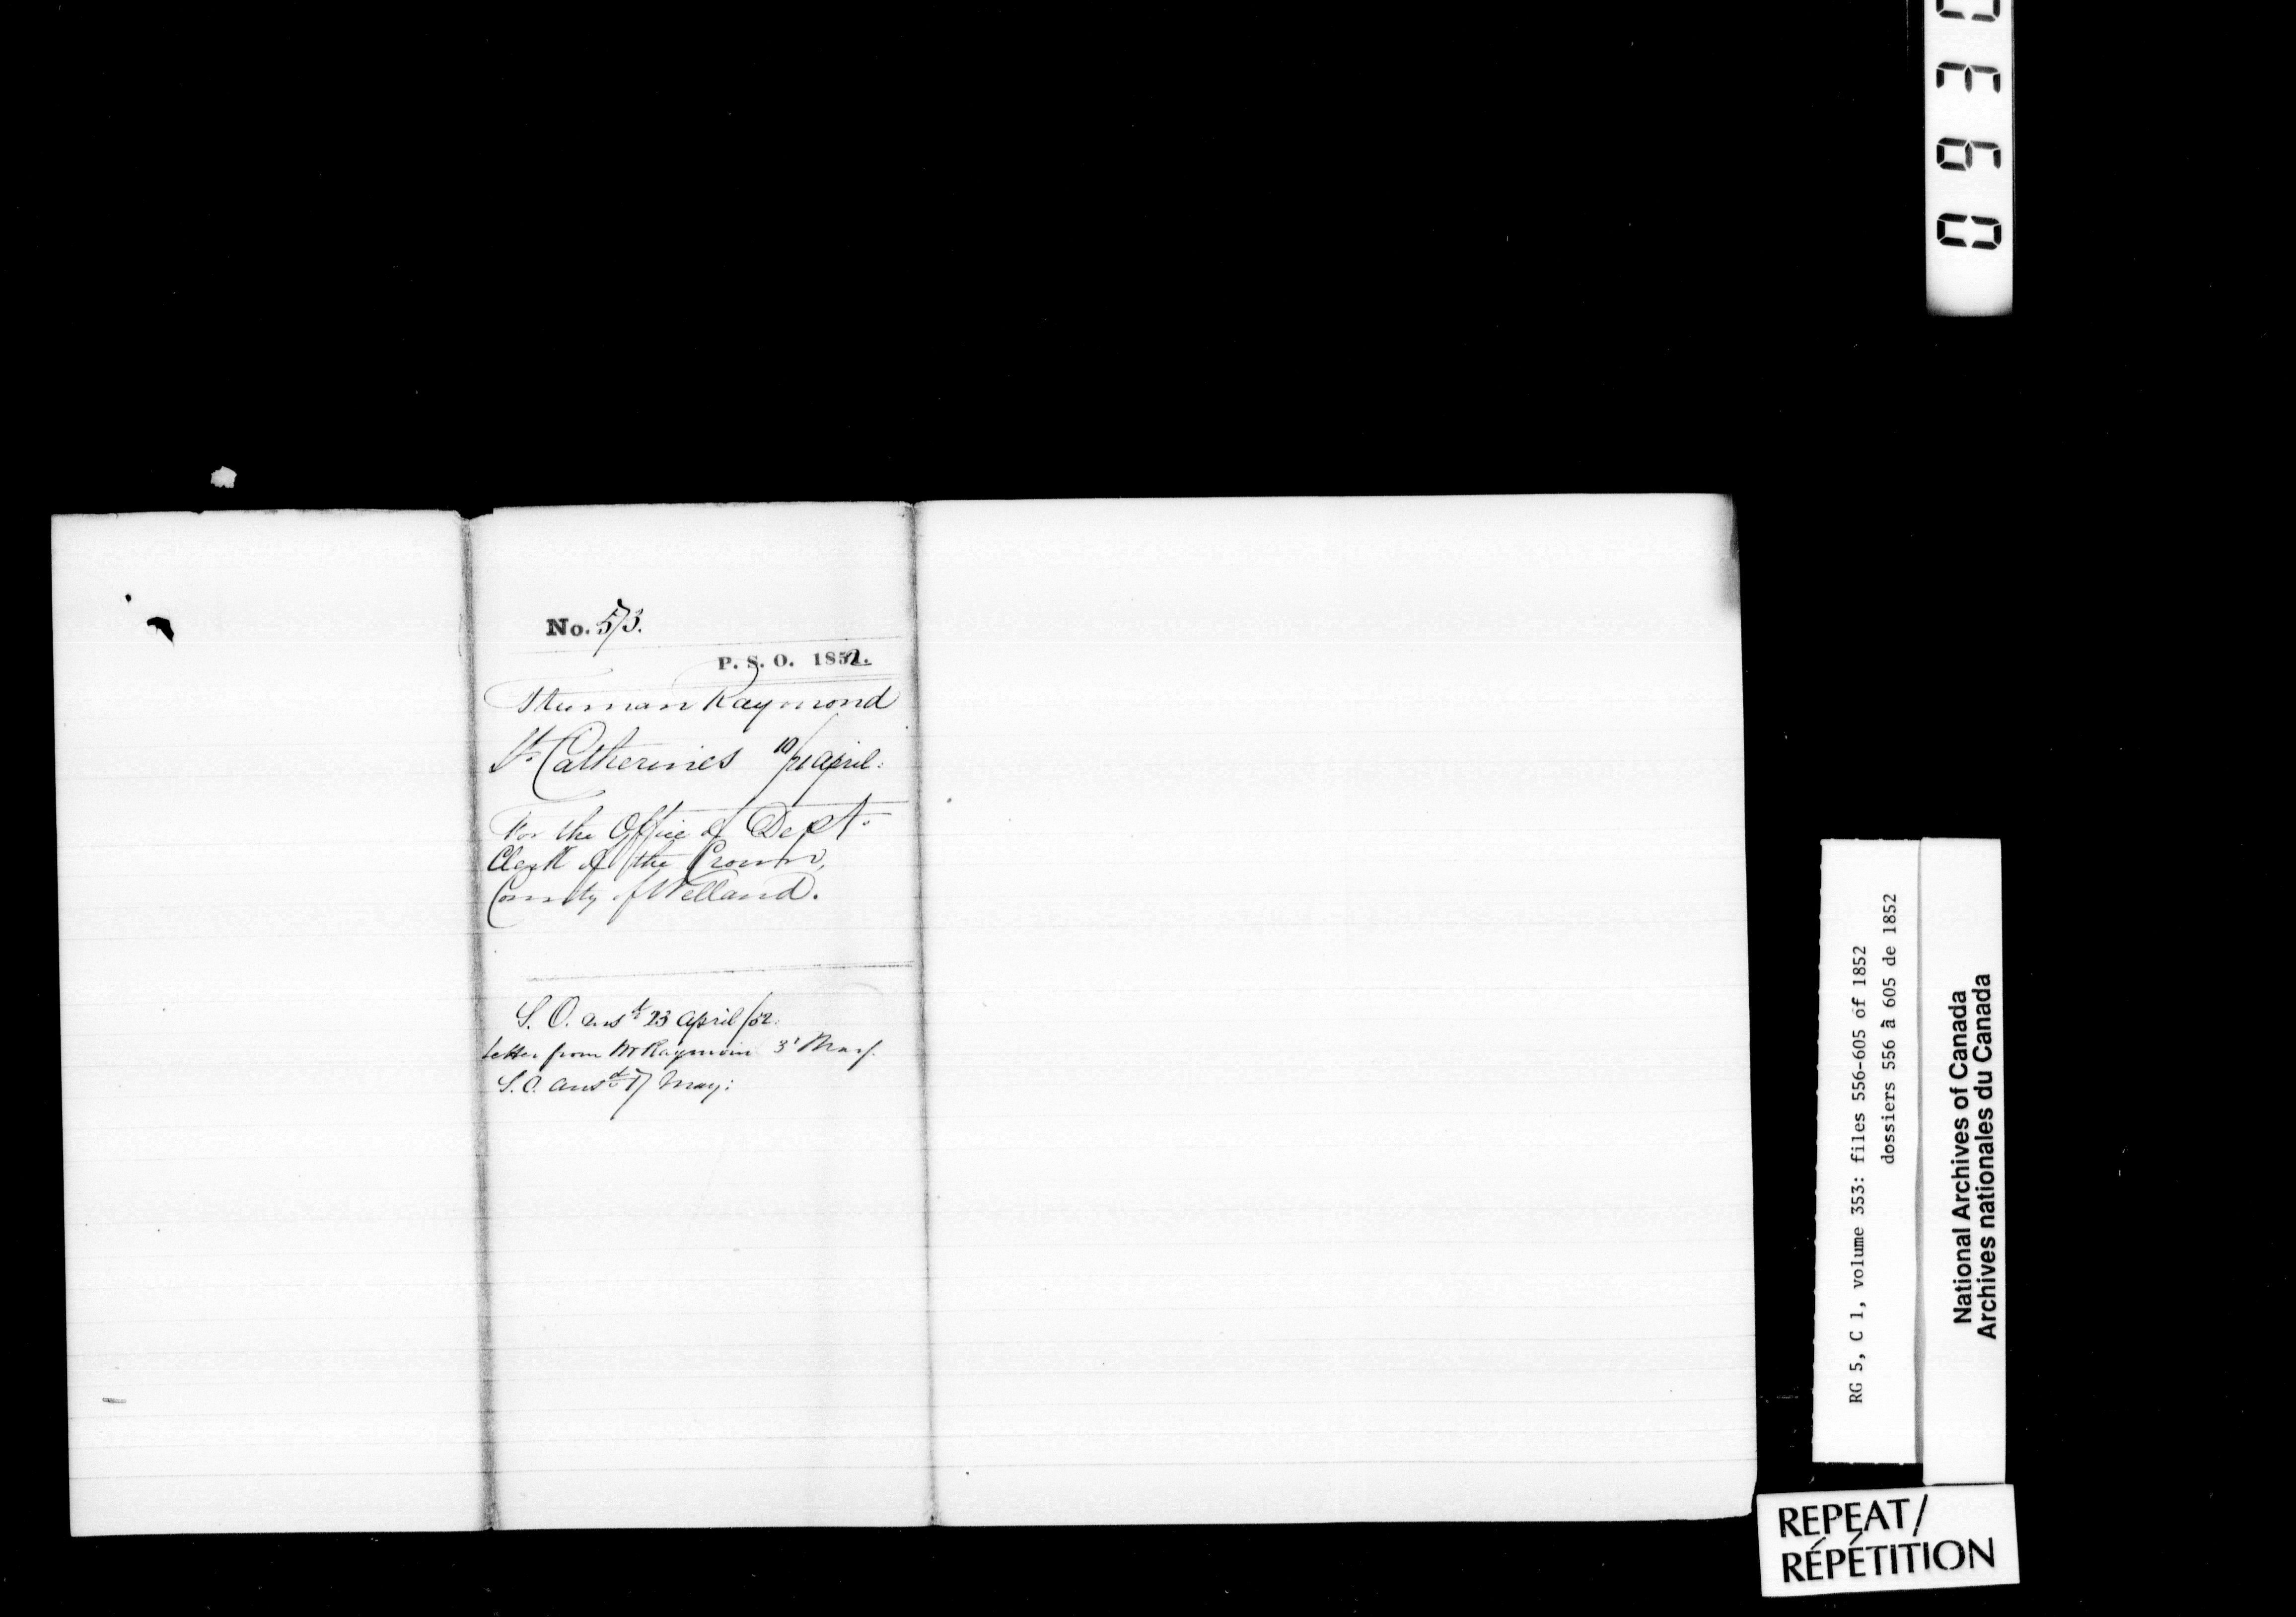 No. 573.
P. S. O. 1852.
Truman Raymond
St. Catherines 19/21 April:
For the Office of Dept.
Clerk of the Crown,
County of Welland.
S. O. ansd. 23 April /52.
Letter from Mr Raymond 3d May.
S. O. ansd. 17 May:
0930
RG 5, C 1, volume 353: files 556-605 of 1852
dossiers 556 à 605 de 1852
National Archives of Canada
Archives nationales du Canada
REPEAT/
RÉPÉTITION